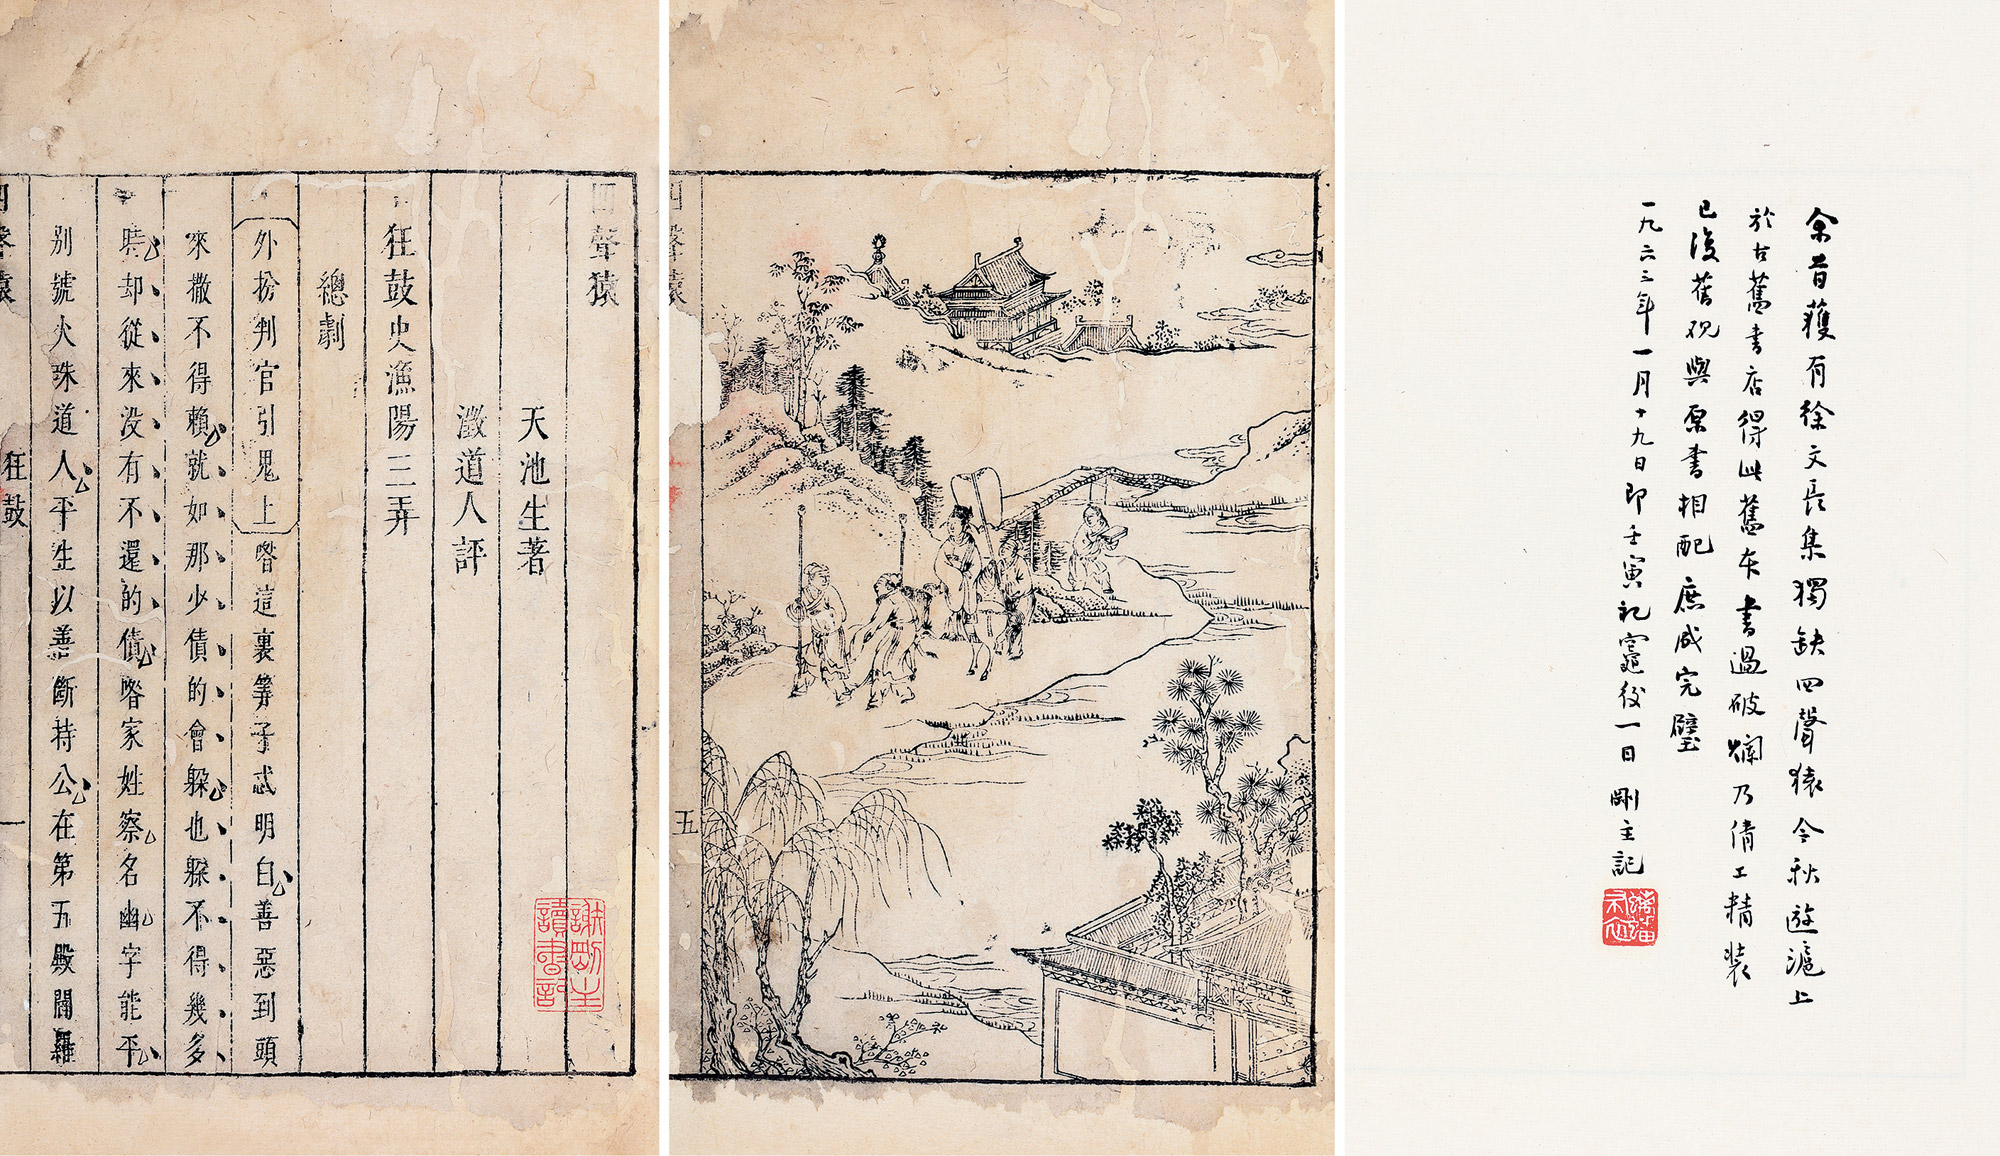 四聲猿
天池生著
澂道人評
狂鼓史漁陽三弄
總劇
外扮判官引鬼上 喒這裏筭子忒明白善惡到頭
來撒不得賴就如那少債的會躲也躲不得幾多
時却從來没有不還的債喒家姓察名幽字能平
别號火珠道人平生以善斷持公在第五殿閻羅
四聲猿
狂鼓
一
謝剛主讀書記
四聲猿
五
余昔獲有徐文長集獨缺四聲猿今秋遊滬上
於古舊書店得此舊本書過破爛乃倩工精裝
已復舊观與原書相配庶成完璧
一九六三年一月十九日即壬寅祀竈後一日剛主記